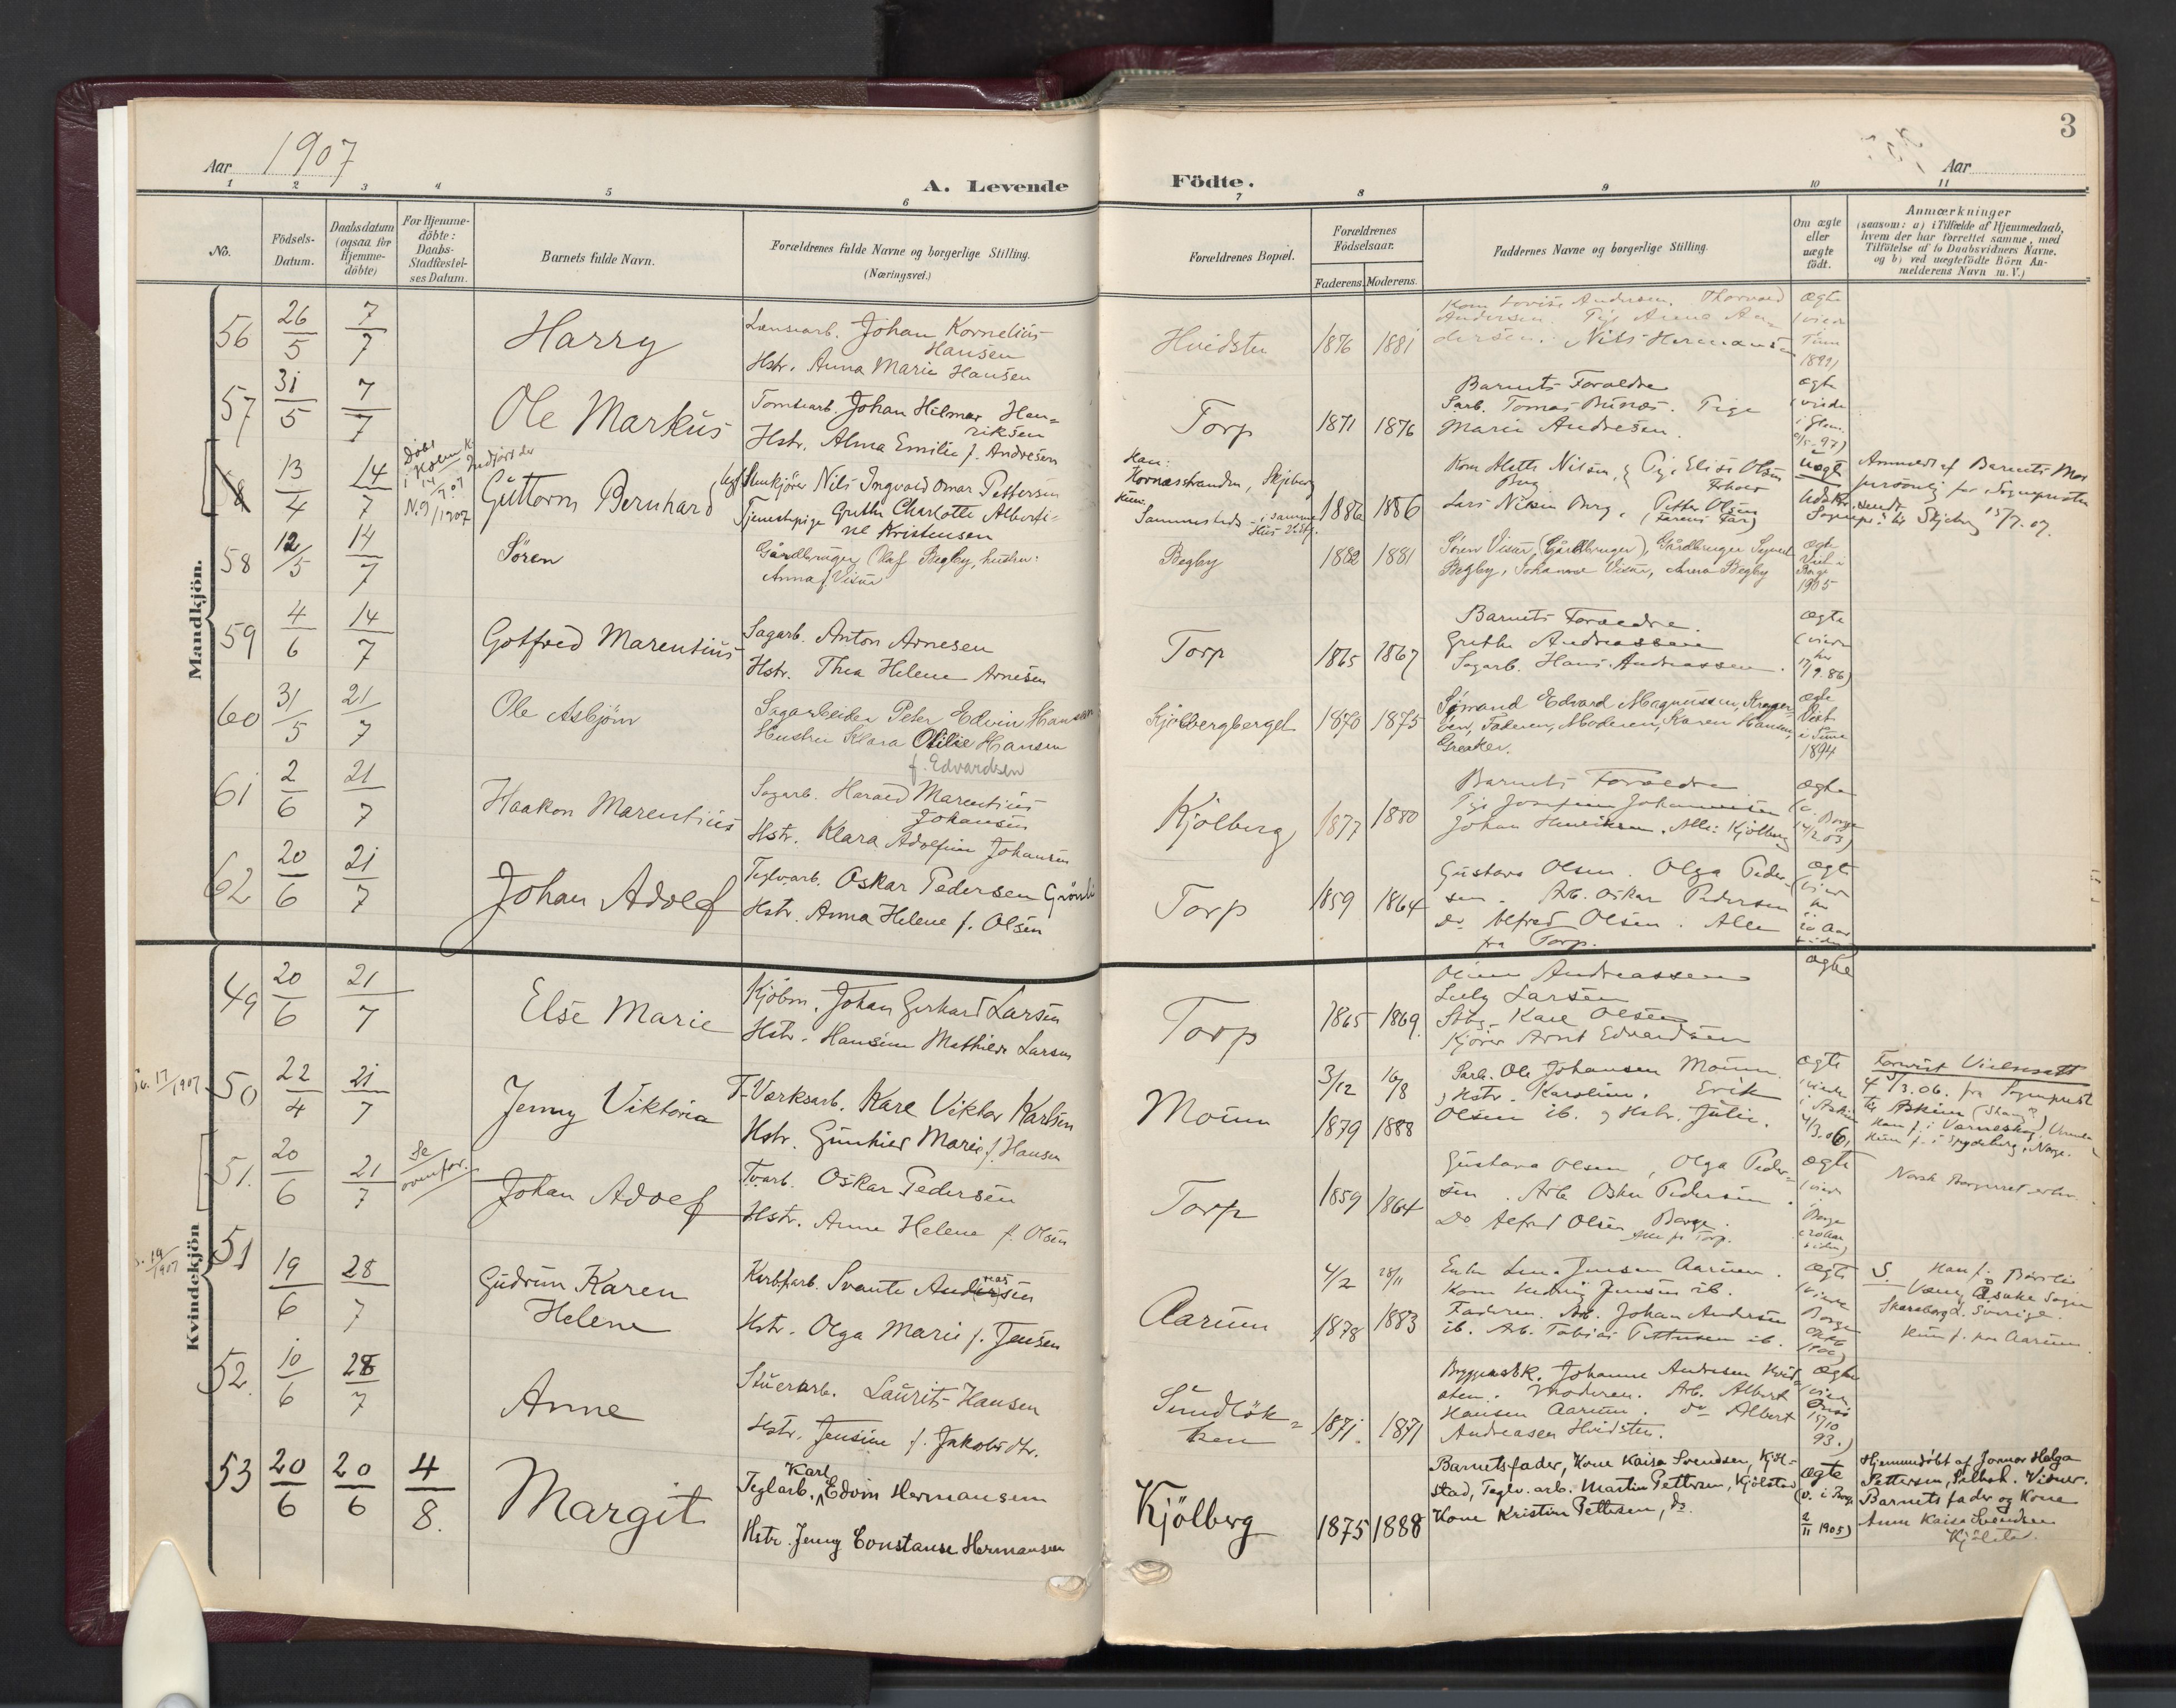 3
Aar 1907
A. Levende Födte.
Aar
1 2 3 4 5 6 7 8 9 10 11
No.
Födsels-
Datum.
Daabsdatum
(ogsaa for
Hjemme-
döbte)
For Hjemme-
döbte:
Daabs-
Stadfestel-
ses Datum.
Barnets fulde Navn.
Forældrenes fulde Navne og borgerlige Stilling.
(Næringsvei.)
Forældrenes Bopæl.
Forældrenes
Födselsaar.
Faderens. Moderens.
Faddernes Navne og borgerlige Stilling.
Om ægte
eller
uægte
födt.
Anmærkninger
(saasom: a) i Tilfælde af Hjemmedaab,
hvem der har forrettet samme, med
Tilföielse af to Daabsvidners Navne.
og b) ved uægtefödte Börn An-
melderens Navn m. V.)
Mandkjön.
56 26/5 7/7 Harry
Lænsearb. Johan Kornelius
Hansen
Hstr. Anna Marie Hansen
Hvidsten 1876 1881
Kone Lovise Andersen. Thorvald
Andersen. Pige Anna An-
dersen. Nils Hermansen
ægte
(viede
Tune
1899)
57 31/5 7/7 Ole Markus
Tomtearb. Johan Hilmar Hen-
riksen
Hstr. Alma Emilie f. Andresen
Torp 1871 1876
Barnets Forældre
Sarb. Tomas Bunæs. Pige
Marie Andresen.
ægte
(viede
i Glem.
97)
8 13/4 14/7
Döbt
i
14/7 07
No. 9/1907
Indført der
Guttorm Bernhard
Ugf. Nils Ingvald Omar Pettersen
Tjenestepige Grethe Charlotte Alberti-
ne Kristensen
Han:
Hornesstranden, Skjeberg
Hun:
Sammesteds - i samme
Hus
1886 1886
Kone Mette Nilsen, Pige Elise Olsen
Berg
Lars Nilsen Berg, Petter Olsen
(Farens Far)
uægte
Anmeldt af Barnets Mor
personlig for Sognepresten
Udskr. sendt
Sognepr. til Skjeberg 15/7.07.
58 12/5 14/7 Sören
Gårdbruger Olaf Begby, hustru:
Anna f. Visur
Begby 1882 1881
Søren Visur, (Gårdbruger), Gårdbruger Syvert
Begby, Johanne Visur, Anna Begby
ægte
Viet i
Borge
1905
59 4/6 14/7 Gotfred Marentius
Sagarb. Anton Arnesen
Hstr. Thea Helene Arnesen
Torp 1865 1867
Barnets Forældre.
Grethe Andreassen
Sagarb. Hans Andreassen.
ægte
(viede
her
17/9.86)
60 31/5 21/7 Ole Asbjörn
Sagarbeider Peter Edvin Hansen
Hustru Klara Otilie Hansen
f. Edvardsen
Kjölbergberget 1870 1875
Sømand Edvard Magnussen, Krager-
øen, Faderen, Moderen, Karen Hansen,
Greaker.
ægte
Viet
i Tune
1894
61 2/6 21/7 Haakon Marentius
Sagarb. Harald Marentius
Johansen
Hstr. Klara Adolfine Johansen
Kjölberg 1877 1880
Barnets Forældre
Pige Josefine Johannesen
Johan Henriksen. Alle: Kjölberg
ægte
(v. Borge
14/2 03)
62 20/6 21/7 Johan Adolf
Teglvarb. Oskar Pedersen Grönli
Hstr. Anna Helene f. Olsen
Torp 1859 1864
Gustava Olsen. Olga Peder-
sen. Arb. Oskar Pedersen
do. Alfred Olsen. Alle
fra Torp.
ægte
(viede
her
20 Aar
siden
Kvindekjön
49 20/6 21/7 Else Marie
Kjöbm. Johan Gerhard Larsen
Hstr. Hansine Mathilde Larsen
Torp 1865 1869.
Oline Andreassen
Luly Larsen
Stbg. Karl Olsen
Kjörer Arnt Edvardsen
ægte
17/1907
50 22/4 21/7 Jenny Viktoria
T-Værksarb. Karl Viktor Karlsen
Hstr. Gunhild Marie f. Hansen
Moum 3/12 1879 16/8 1888
Sarb. Ole Johansen Moum.
Hstr. Karoline. Erik
Olsen ib. og Hstr. Julie.
ægte
(viede
i Askim
4/3.06)
Forevist Vielsesatt.
4/3.06. fra Sognepresten
til Askim
Han f. i Varneskog, Vermland
Hun f. i Spydeberg, Norge.
51. 20/6 21/7
Se
ovenfor.
Johan Adolf
Tvarb. Oskar Pedersen
Hstr. Anne Helene f. Olsen
Torp 1859 1864
Gustava Olsen, Olga Peder-
sen. Arb. Oskar Pedersen.
Do Alfred Olsen Borge.
Alle fr Torp.
ægte
(viede
i Borge
20 Aar
siden)
Norsk Borgerret erhv.
19/1907
51 19/6 28/7 Gudrun Karen
Helene
Svante Andersen
Hstr. Olga Marie f. Jensen
Aarum 4/2 1878 28/11 1883
Enke Lina Jensen Aarum.
Kone Hedvig Jensen ib.
Faderen. Arb. Johan Andersen
ib. Arb. Tobias Pettersen ib.
ægte
(viede
Borge
1906)
S. Han f.
Væng Åsake Sogn
Skaraborg L. Sverige.
Hun f. paa Aarum.
52. 10/6 28/7 Anne
Stuerarb. Laurits Hansen
Hstr. Jensine f. Jakobsdtr.
Sundlök-
ken 1871. 1871
Johanne Andresen Hvid-
sten. Moderen. Arb. Albert
Hansen Aarum. do Albert
Andreasen Hvidsten.
ægte
(viede
Onsö
15/10
93.)
53 20/6 20/6 4/8. Margit
Teglarb. Karl Edvin Hermansen
Hstr. Jenny Constanse Hermansen
Kjölberg 1875 1888
Barnets fader, Kone Kaisa Svendsen, Kjöl-
stad, Teglv. arb. Martin Pettersen, Kjölstad
Kone Kristin Pettersen, do.
ægte
(v. i Borge
2/11 1905)
Hjemmedöbt af Jormor Helga
Pettersen, Selbak. Vidner.
Barnets fader og Kone
Anne Kaisa Svendsen
Kjölstad.